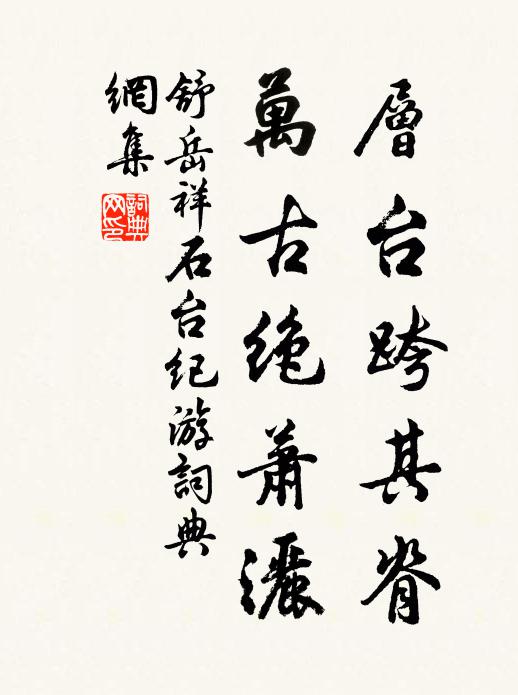 層台跨其脊
萬古絶蕭灑
舒岳祥石台纪游詞典
網集
詞典网印